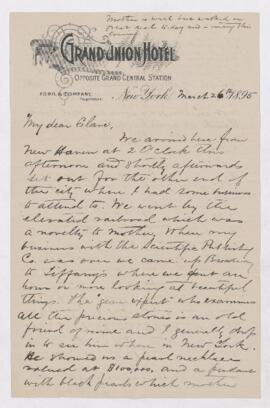 Mother is well but walked in
great deal to day and is
GRAND UNION HOTEL
OPPOSITE GRAND CENTRAL STATION
FORD & COMPANY
New York March 26th 1895
My dear Clare,
We arrived here from
New Haven at 2 O'Clock this
afternoon and shortly afterwards
set out for the other end of
the city where I had some business
to attend to. We went by the
elevated railroad which was
a novelty to Mother. When my
business with the Scientific Publishing
Co. was over we came up Broadway
to Tiffany's where we spent an
hour or more looking at beautiful
things. The gem expert who examines
all the precious stones is an old
friend of mine and I generally drop
in to see him when in New York.
He showed us a pearl necklace
valued at $100,000. and a pendant
with black pearls which mother